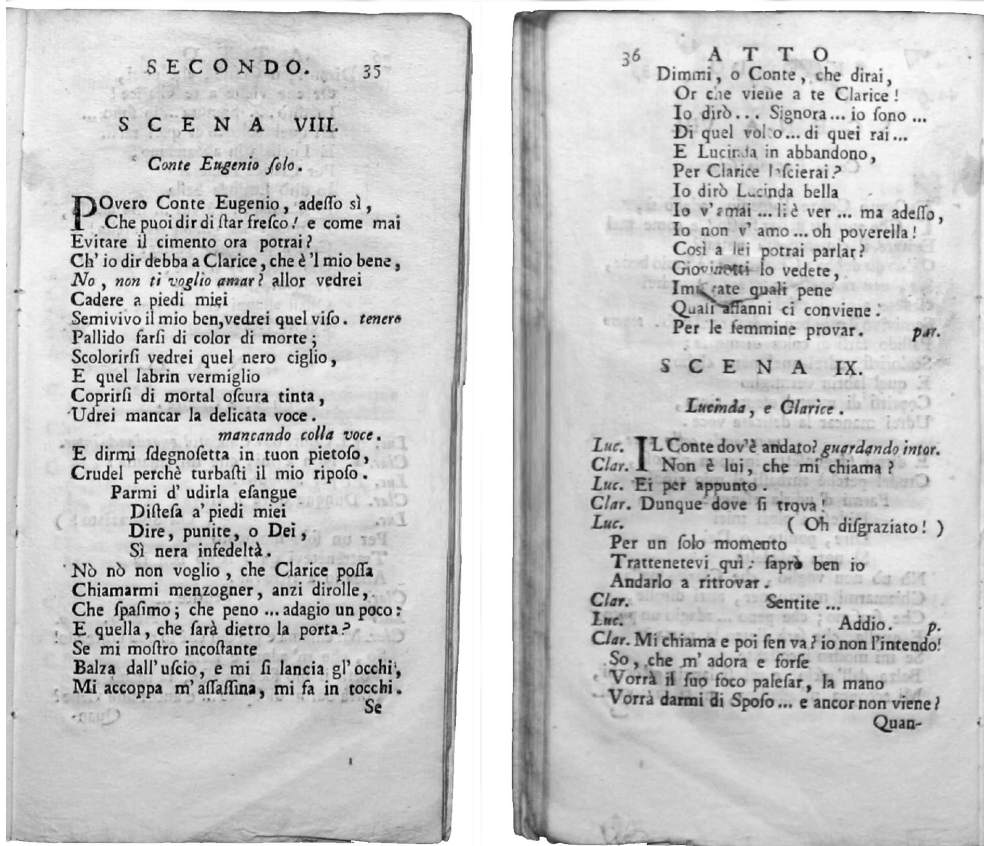 SECONDO. 35
SCENA VIII.
Conte Eugenio ſolo.
POvero Conte Eugenio, adeſſo sì,
Che puoi dir di ſtar freſco! e come mai
Evitare il cimento ora potrai?
Ch' io dir debba a Clarice, che è 'l mio bene,
No, non ti voglio amar? allor vedrei
Cadere a piedi miei
Semivivo il mio ben, vedrei quel viſo. tenero
Pallido farſi di color di morte;
Scolorirſi vedrei quel nero ciglio,
E quel labrin vermiglio
Coprirſi di mortal oſcura tinta,
Udrei mancar la delicata voce.
mancando colla voce.
E dirmi ſdegnoſetta in tuon pietoſo,
Crudel perchè turbaſti il mio ripoſo.
Parmi d' udirla eſangue
Diſteſa a' piedi miei
Dire, punite, o Dei,
Sì nera infedeltà.
Nò nò non voglio, che Clarice poſſa
Chiamarmi menzogner, anzi dirolle,
Che ſpaſimo; che peno ... adagio un poco:
E quella, che ſarà dietro la porta?
Se mi moſtro incoſtante
Balza dall' uſcio, e mi ſi lancia gl' occhi,
Mi accoppa m' aſſaſſina, mi fa in tocchi.
Se
36 ATTO
Dimmi, o Conte, che dirai,
Or che viene a te Clarice!
Io dirò... Signora... io ſono ...
Di quel volto... di quei rai ...
E Lucinda in abbandono,
Per Clarice laſcierai?
Io dirò Lucinda bella
Io v' amai ... è ver ... ma adeſſo,
Io non v' amo ... oh poverella!
Così a lei potrai parlar?
Giovinotti lo vedete,
Imparate quali pene
Quali affanni ci conviene.
Per le femmine provar. par.
SCENA IX.
Lucinda, e Clarice.
Luc. IL Conte dov'è andato? guardando intor.
Clar. Non è lui, che mi chiama?
Luc. Ei per appunto.
Clar. Dunque dove ſi trova!
Luc. (Oh diſgraziato!)
Per un ſolo momento
Trattenetevi quì: ſaprò ben io
Andarlo a ritrovar.
Clar. Sentite ...
Luc. Addio. p.
Clar. Mi chiama e poi ſen va? io non l'intendo!
So, che m' adora e forſe
Vorrà il ſuo foco paleſar, la mano
Vorrà darmi di Spoſo ... e ancor non viene?
Quan-